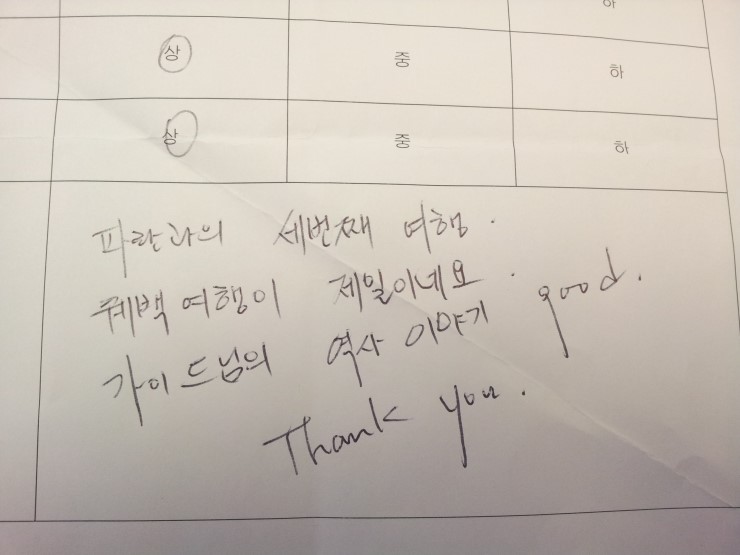 하
상 중 하
상 중 하
파란과의 세번째 여행.
퀘백 여행이 제일이네요.
가이드님의 역사 이야기 good.
Thank you.